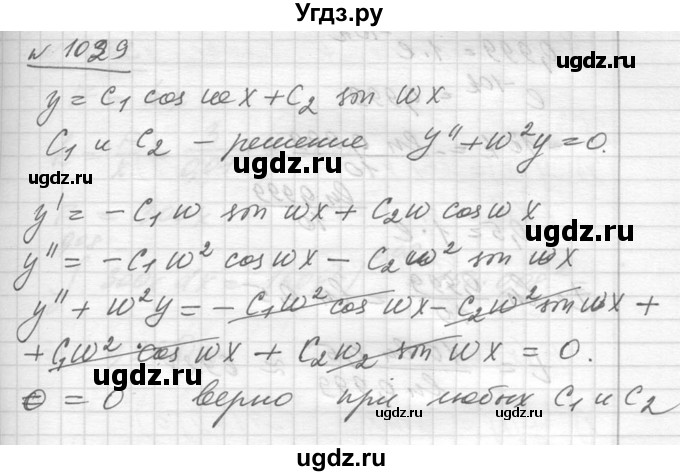 Угдз.ру
№ 1029
y = C₁ cos ωx + C₂ sin ωx
C₁ и C₂ – решение y'' + ω²y = 0.
ugdz.ru ugdz.ru
y' = –C₁ω sin ωx + C₂ω cos ωx
ugdz.ru
y'' = –C₁ω² cos ωx – C₂ω² sin ωx
y'' + ω²y = –C₁ω² cos ωx – C₂ω² sin ωx +
ugdz.ru ugdz.ru
+ C₁ω² · cos ωx + C₂ω₂ sin ωx = 0.
ugdz.ru
0 = 0 верно при любых C₁ и C₂
ugdz.ru ugdz.ru